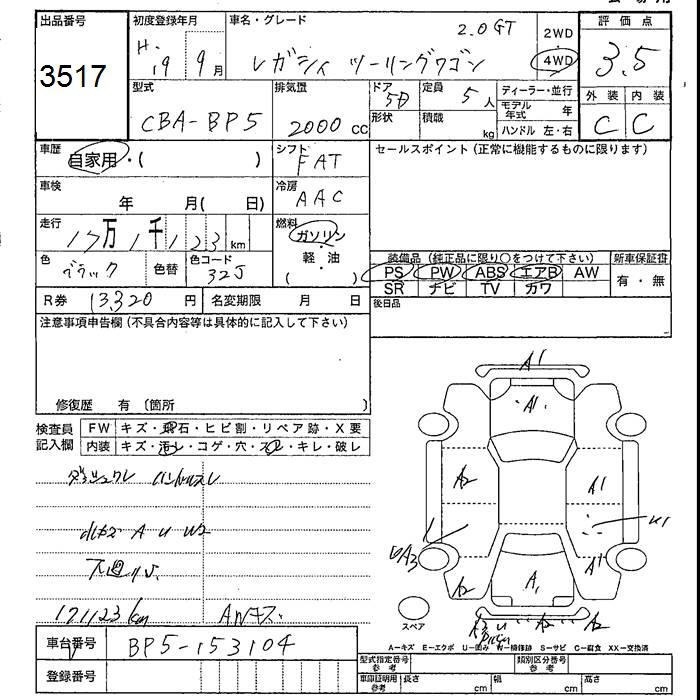 出品番号
3517
初度登録年月
H. 19 9月
車名・グレード
2.0GT
レガシィ ツーリングワゴン
2WD
4WD
評価点
3.5
外装 内装
C C
型式
CBA-BP5
排気量
2000 cc
ドア 5D
形状
定員 5 人
積載 kg
ディーラー・並行
モデル年式 年
ハンドル 左・右
車歴
自家用・( )
シフト
FAT
セールスポイント(正常に機能するものに限ります)
車検
年 月( 日)
冷房
AAC
走行
17万1千123 km
燃料
ガソリン
軽・油
( )
色
ブラック
色替
色コード
32J
装備品(純正品に限り○をつけて下さい)
新車保証書
PS PW ABS エアB AW
SR ナビ TV カワ
有・無
R券 13,320 円
名変期限 月 日
後日品
注意事項申告欄(不具合内容等は具体的に記入して下さい)
修復歴 有 〔箇所 〕
検査員記入欄
FW キズ・飛石・ヒビ割・リペア跡・X要
内装 キズ・汚レ・コゲ・穴・スレ・キレ・破レ
ハンドルスレ
A U W2
171123 km
AWキズ
A1
A1
A2
A1
A2
A1
A1
A2
A2
スペア
A-キズ E-エクボ U-凹み W-補修跡 S-サビ C-腐食 XX-交換済
車台番号
BP5-153104
登録番号
型式指定番号 参考
類別区分番号 参考
車庫証明用 参考
長さ cm
幅 cm
高さ cm